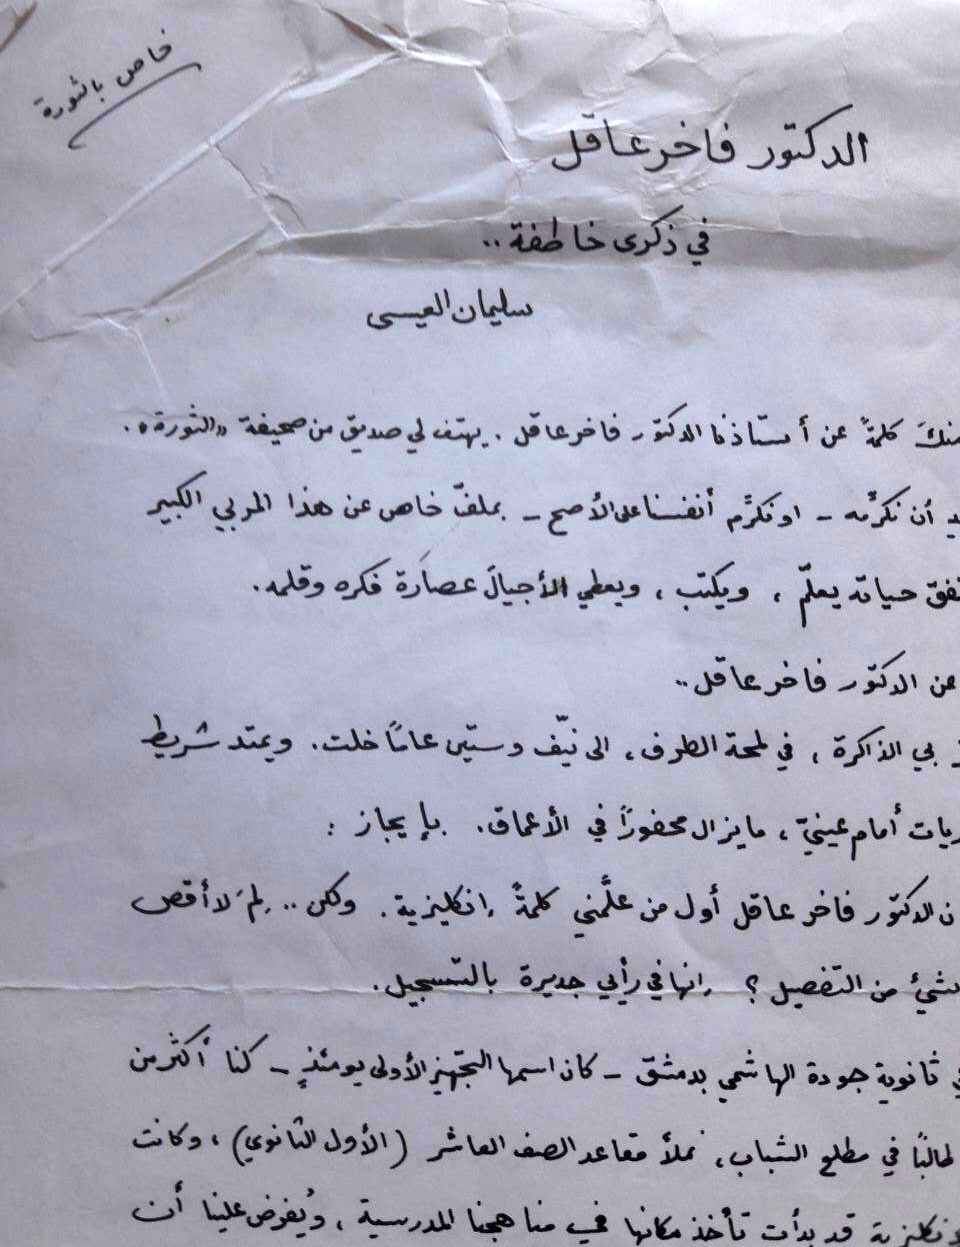 خاص بالثورة
الدكتور فاخر عاقل
في ذكرى خاطفة ..
سليمان العيسى
منكَ كلمةً عن أستاذنا الدكتور فاخر عاقل . يهتف لي صديق من صحيفة «الثورة» .
أن نكرّمه - او نكرِّم أنفسنا على الأصح - بملفّ خاص عن هذا المربي الكبير
حياته يعلّم ، ويكتب ، ويعطي الأجيالَ عصارَة فكره وقلمه .
عن الدكتور فاخر عاقل ..
بي الذاكرة ، في لمحة الطرف ، الى نيّف وستّين عامًا خلت . ويمتد شريط
أمام عينيّ ، ما يزال محفورًا في الأعماق . بإيجاز :
الدكتور فاخر عاقل أول من علَّمني كلمةً إنكليزية . ولكن .. لِمَ لا أقص
من التفصيل ؟ إنها في رأيي جديرة بالتسجيل .
ثانوية جودة الهاشمي بدمشق - كان اسمها التجهيز الأولى يومئذٍ - كنا أكثر من
طالبًا في مطلع الشباب ، نملأ مقاعد الصف العاشر (الأول الثانوي) ، وكانت
قد بدأت تأخذ مكانها في مناهجنا المدرسية ، ويُفرض علينا أن